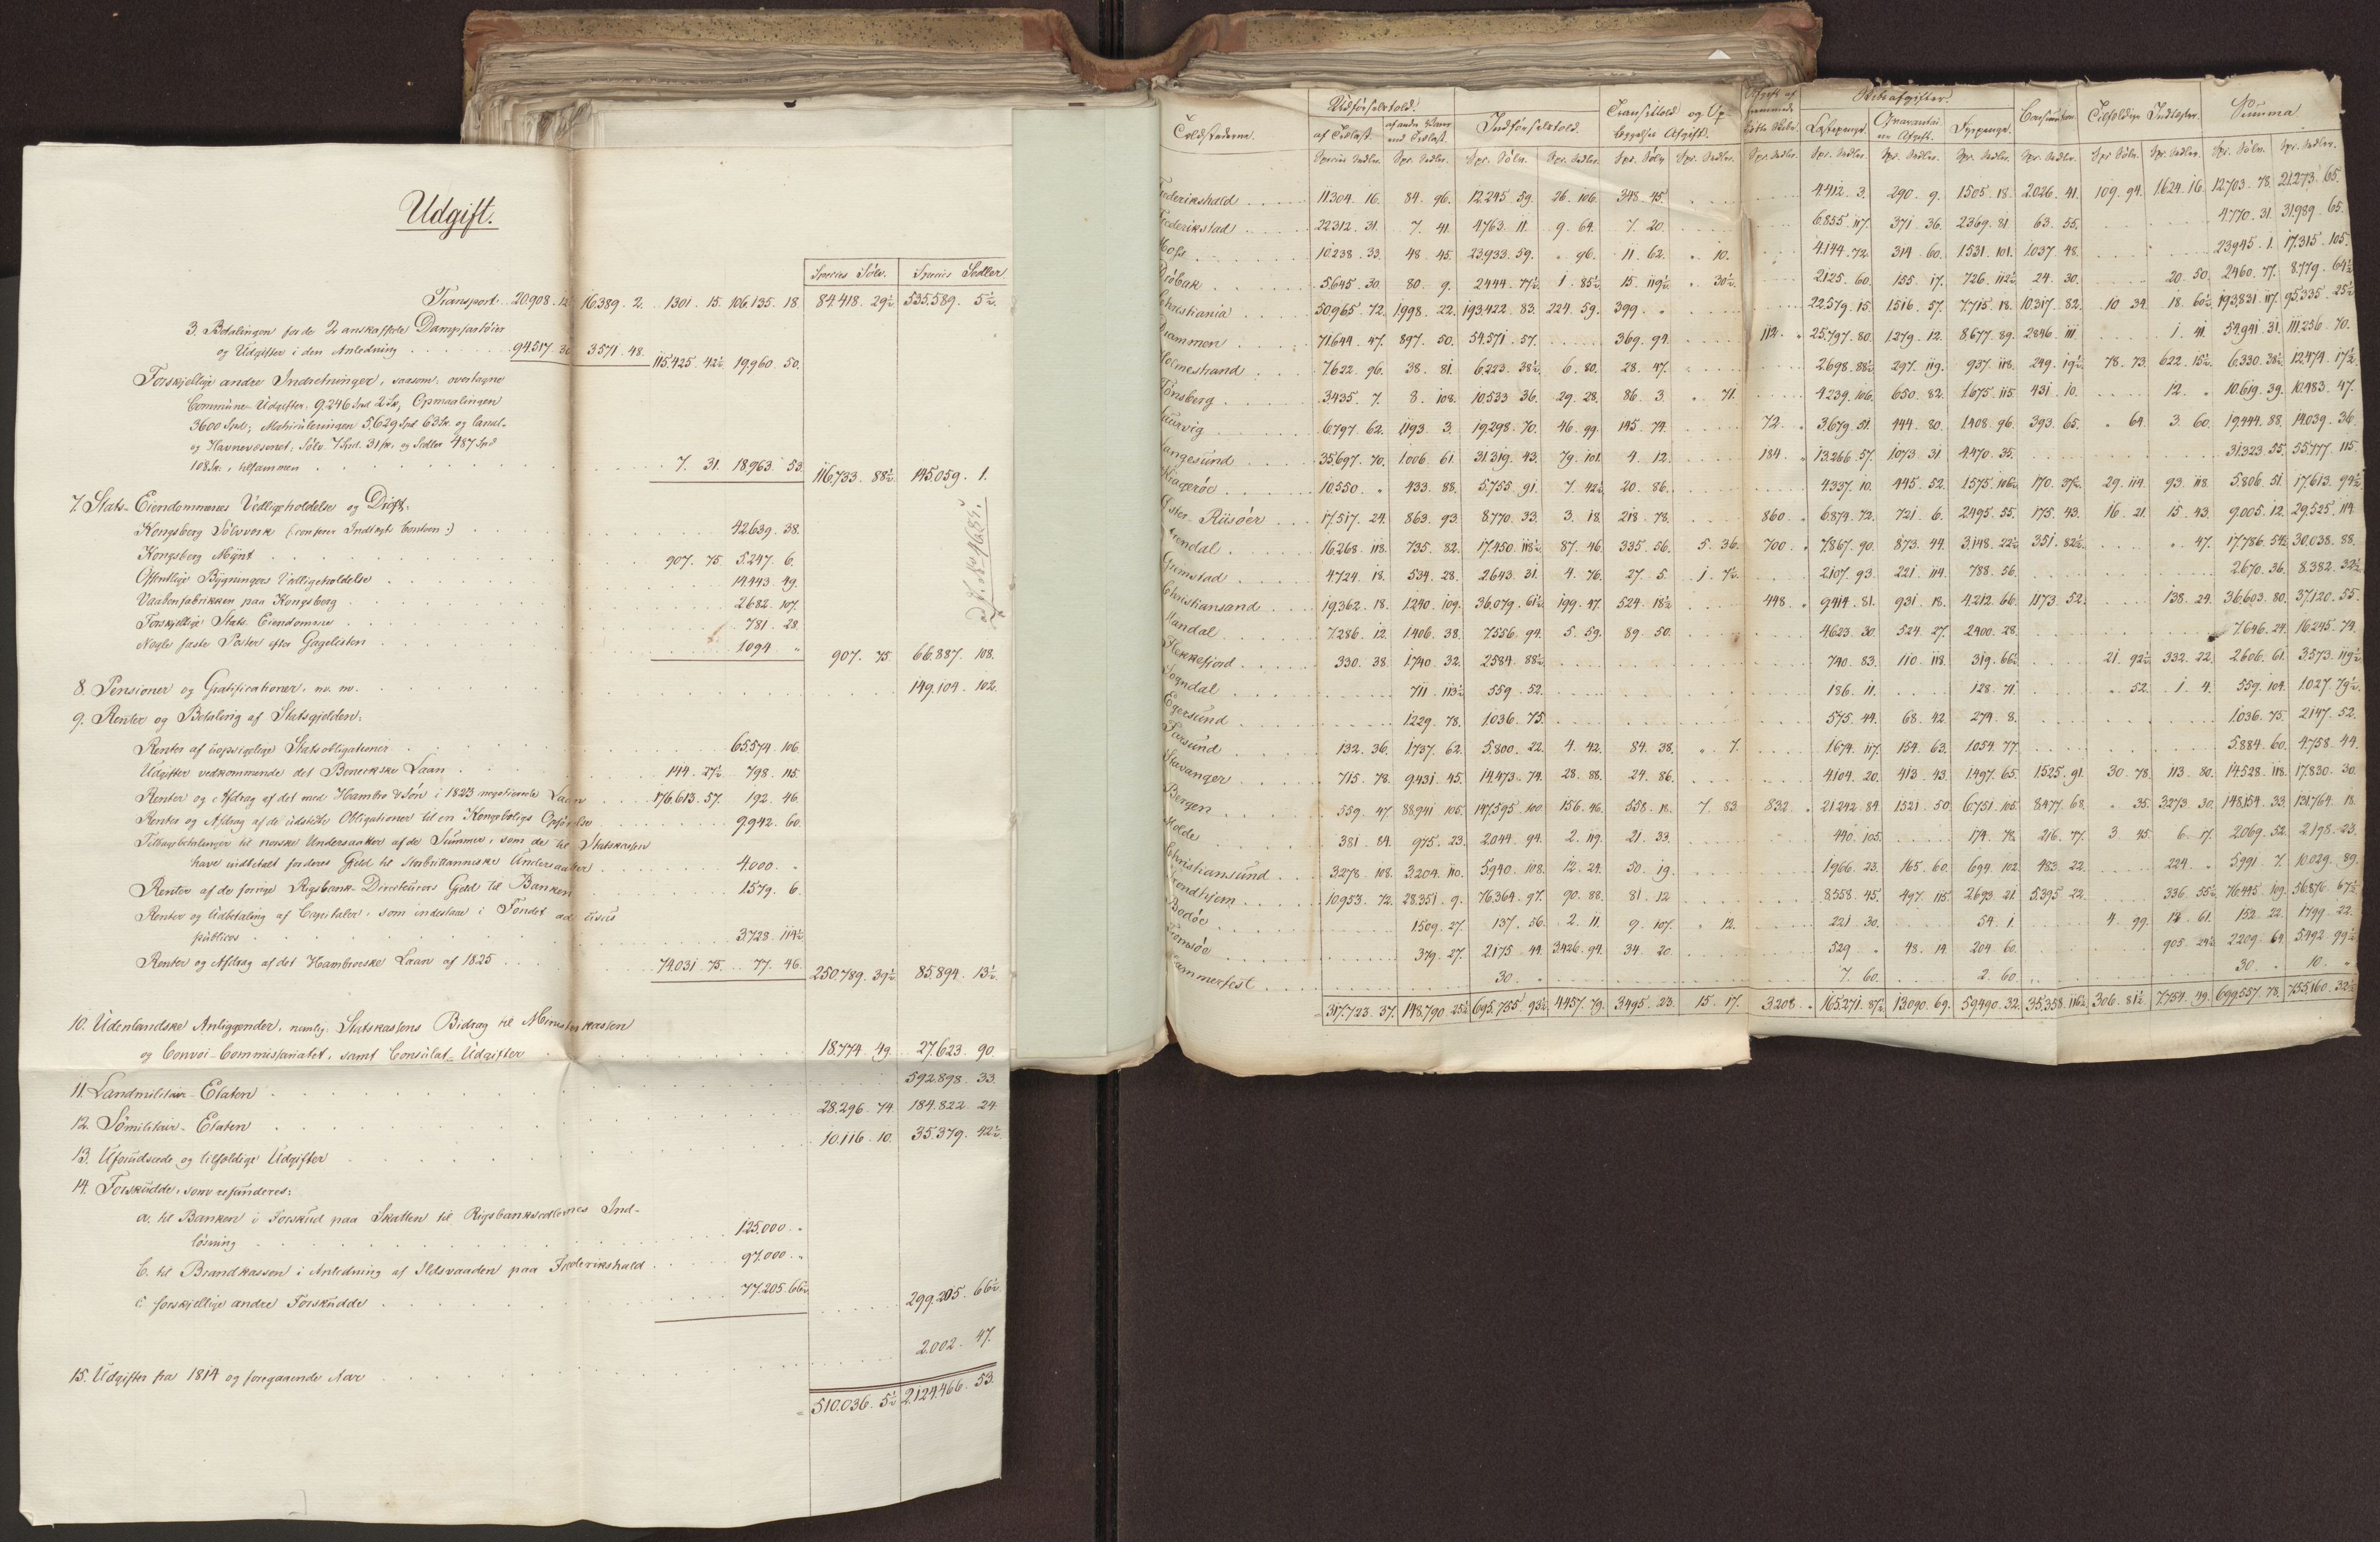 Udgift.
Species Sölv. Species Sedler
Transport. 20.908. 12 16.389. 2. 1301. 15. 106.135. 18 84.418. 29½. 535.589. 5½.
3. Betalingen for de 2 anskaffede Dampfartöier
og Udgifter i den Anledning . . . 94.517. 30 3.571. 48.
115.425. 42½. 19.960. 50.
Forskjellige andre Indretninger, saasom: overtagne
Commüne-Udgifter. 9.246 Spd. 2 Sk; Opmaalingen
3600 Spd; Matriculeringen 5.629 Spd. 63 Sk. og Canal-
og Havnevæsenet, Sölv. 7 Spd. 31 Sk, og Sedler 487 Spd
108 Sk., tilsammen . . . 7. 31. 18.963. 53. 116.733. 88½. 145.059. 1.
7. Stats-Eiendommenes Vedligeholdelse og Drift:
Kongsberg Sölvverk (: confer Indtægts Contoen :) . . . 42.639. 38.
Kongsberg Mynt . . . 907. 75. 5.247. 6.
Offentlige Bygningers Vedligeholdelse . . . 14.443. 49.
Vaabenfabrikken paa Kongsberg . . . 2.682. 107.
Forskjellige Stats Eiendomme . . . 781. 28.
Nogle faste Poster efter Gagelisten . . . 1094 " 907. 75. 66.887. 108.
8. Pensioner og Gratificationer. m. m. . . . 149.104. 102.
9. Renter og Betaling af Statsgjelden:
Renter af uopsigelige Statsobligationer . . . 65.574. 106.
Udgifter vedkommende det Beneckske Laan . . . 144. 27½. 798. 115.
Renter og Afdrag af det med Hambro & Sön i 1823 negotierede Laan . . . 176.613. 57. 192. 46.
Renter og Afdrag af de udstedte Obligationer til en Kongeboligs Opförelse . . . 9.942. 60.
Tilbagebetalinger til norske Undersaatter af de Summer, som de til Statskassen
have indbetalt for deres Gjeld til storbrittanniske Undersaatter . . . 4.000. "
Renter af de forrige Rigsbank-Directeurers Gjeld til Banken . . . 1579. 6.
Renter og Udbetaling af Capitaler, som indestaae i Fondet ad usus
publicos . . . 3.728. 114½
Renter og Afdrag af det Hambroeske Laan af 1825 . . . 74.031. 75. 77. 46. 250.789. 39½. 85.894. 13½.
10. Udenlandske Anliggender, nemlig: Statskassens Bidrag til Ministerkassen
og Convoi-Commissariatet, samt Consulat-Udgifter . . . 18.774. 49. 27.623. 90.
11. Landmilitair-Etaten . . . 592.898. 33.
12. Sömilitair-Etaten . . . 28.296. 74. 184.822. 24.
13. Uforudseede og tilfældige Udgifter . . . 10.116. 10. 35.379. 42½.
14. Forskudde, som refunderes:
a. til Banken i Forskud paa Skatten til Rigsbanksedlernes Ind-
lösning . . . 125.000. "
b. til Brandkassen i Anledning af Ildsvaaden paa Frederikshald . . . 97.000. "
c. forskjellige andre Forskudde . . . 77.205. 66½. 299.205. 66½.
15. Udgifter fra 1814 og foregaaende Aar . . . 2.002. 47.
= 510.036. 5½ 2.124.466. 53.
Toldstederne. Udförselstold. Indförselstold. Transittold og Op- Skibsafgifter. Consumtion. Tilfældige Indtægter. Summa
af Trælast. af andre Varer end Trælast. læggelses Afgift. Lastepenge. Qvarantai- ne Afgift. Fyrpenge.
Species Sedler. Spr. Sedler. Spr. Sölv. Spr. Sedler. Spr. Sölv. Spr. Sedler. Spr. Sedler. Spr. Sedler. Spr. Sedler. Spr. Sedler. Spr. Sedler. Spr. Sölv. Spr. Sedler. Spr. Sölv. Spr. Sedler.
Frederikshald 11.304. 16. 84. 96. 12.245. 59. 26. 106. 348. 45. 4.412. 3. 290. 9. 1.505. 18. 2.026. 41. 109. 94. 1.624. 16. 12.703. 78. 21.273. 65.
Frederikstad 22.312. 31. 7. 41. 4.763. 11. 9. 64. 7. 20. 6.855. 117. 371. 36. 2.369. 81. 63. 55. 4.770. 31. 31.989. 65.
Moss 10.238. 33. 48. 45. 23.933. 59. " 96. 11. 62. " 10. 4.144. 72. 314. 60. 1.531. 101. 1.037. 48. 23.945. 1. 17.315. 105.
Dröbak 5.645. 30. 80. 9. 2.444. 77½. 1. 85½. 15. 119½. " 30½. 2.125. 60. 155. 17. 726. 112½. 24. 30. 20. 50. 2.460. 77. 8.779. 64½
Christiania 50.965. 72. 1.998. 22. 193.422. 83. 224. 59. 399. " 22.579. 15. 1.516. 57. 7.715. 18. 10.317. 82. 10. 34. 18. 60½. 193.831. 117. 95.335. 25½
Drammen 71.644. 47. 897. 50. 54.571. 57. 369. 94. 112. " 25.797. 80. 1.279. 12. 8.677. 89. 2.846. 111. 1. 41. 54.941. 31. 111.256. 70.
Holmestrand 7.622. 96. 38. 81. 6.223. 38½. 6. 80. 28. 47. 2.698. 88½. 297. 119. 937. 118. 249. 19½. 78. 73. 622. 15½. 6.330. 38½. 12.474. 17½.
Tönsberg 3.435. 7. 8. 108. 10.533. 36. 29. 28. 86. 3. " 71. 4.239. 106. 650. 82. 1.675. 115. 431. 10. 12. " 10.619. 39. 10.483. 47.
Laurvig 6.797. 62. 1.193. 3. 19.298. 70. 46. 99. 145. 74. 72. " 3.679. 51. 444. 80. 1.408. 96. 393. 65. " 64. 3. 60. 19.444. 88. 14.039. 36.
Langesund 35.697. 70. 1.006. 61. 31.319. 43. 79. 101. 4. 12. 184. " 13.266. 57. 1.073. 31. 4.470. 35. 31.323. 55. 55.777. 115.
Kragerøe 10.550. " 433. 88. 5.755. 91. 7. 42½. 20. 86. 4.337. 10. 445. 52. 1.575. 116½. 170. 37½. 29. 114. 93. 118. 5.806. 51. 17.613. 94½
Öster-Riisöer 17.517. 24. 863. 93. 8.770. 33. 3. 18. 218. 78. 860. " 6.874. 72. 721. 6. 2.495. 55. 175. 43. 16. 21. 15. 43. 9.005. 12. 29.525. 114.
Arendal 16.268. 118. 735. 82. 17.450. 118½. 87. 46. 335. 56. 5. 36. 700. " 7.867. 90. 873. 44. 3.148. 22½. 351. 82½. " 47. 17.786. 54½. 30.038. 88.
Grimstad 4.724. 18. 534. 28. 2.643. 31. 4. 76. 27. 5. 1. 7½. 2.107. 93. 221. 114. 788. 56. 2.670. 36. 8.382. 32½
Christiansand 19.362. 18. 1.240. 109. 36.079. 61½. 199. 47. 524. 18½. 448. " 9.414. 81. 931. 18. 4.212. 66. 1.173. 52. 138. 24. 36.603. 80. 37.120. 55.
Mandal 7.286. 12. 1.406. 38. 7.556. 94. 5. 59. 89. 50. 4.623. 30. 524. 27. 2.400. 28. 7.646. 24. 16.245. 74.
Flekkefjord 330. 38. 1.740. 32. 2.584. 88½. 740. 83. 110. 118. 319. 66½. 21. 92½. 332. 22. 2.606. 61. 3.573. 119½.
Sogndal 711. 113½. 559. 52. 186. 11. 128. 71. " 52. 1. 4. 559. 104. 1.027. 79½.
Egersund 1.229. 78. 1.036. 75. 575. 44. 68. 42. 274. 8. 1.036. 75. 2.147. 52.
Farsund 132. 36. 1.737. 62. 5.800. 22. 4. 42. 84. 38. " 7. 1.674. 117. 154. 63. 1.054. 77. 5.884. 60. 4.758. 44.
Stavanger 715. 78. 9.431. 45. 14.473. 74. 28. 88. 24. 86. 4.104. 20. 413. 43. 1.497. 65. 1.525. 91. 30. 78. 113. 80. 14.528. 118. 17.830. 30.
Bergen 559. 47. 88.941. 105. 147.595. 100. 156. 46. 558. 18. 7. 83. 832. " 21.242. 84. 1.521. 50. 6.751. 105. 8.477. 68. " 35. 3.273. 30. 148.154. 33. 131.764. 18.
Molde 381. 84. 975. 23. 2.044. 94. 2. 119. 21. 33. 440. 105. 174. 78. 216. 77. 3. 45. 6. 17. 2.069. 52. 2.198. 23.
Christiansund 3.278. 108. 3.204. 110. 5.940. 108. 12. 24. 50. 19. 1.966. 23. 165. 60. 694. 102. 483. 22. 224. " 5.991. 7. 10.029. 89.
Trondhjem 10.953. 72. 28.351. 9. 76.364. 97. 90. 88. 81. 12. 8.558. 45. 497. 115. 2.693. 21. 5.395. 22. 336. 55½. 76.445. 109. 56.876. 67½.
Bodöe 1.509. 27. 137. 36. 2. 11. 9. 107. " 12. 221. 30. 54. 1. 4. 99. 12. 61. 152. 22. 1.799. 22.
Tromsöe 379. 27. 2.175. 44. 3.426. 94. 34. 20. 529. " 48. 14. 204. 60. 905. 24½. 2.209. 64. 5.492. 99½
Hammerfest 30. " 7. 60. 2. 60. 30. " 10. "
= 317.723. 37. 148.790. 25½. 695.755. 93½. 4.457. 79. 3.495. 23. 15. 17. 3.208. " 165.271. 87½. 13.090. 69. 59.490. 32. 35.358. 116½. 306. 81½. 7.754. 49. 699.557. 78. 755.160. 32½